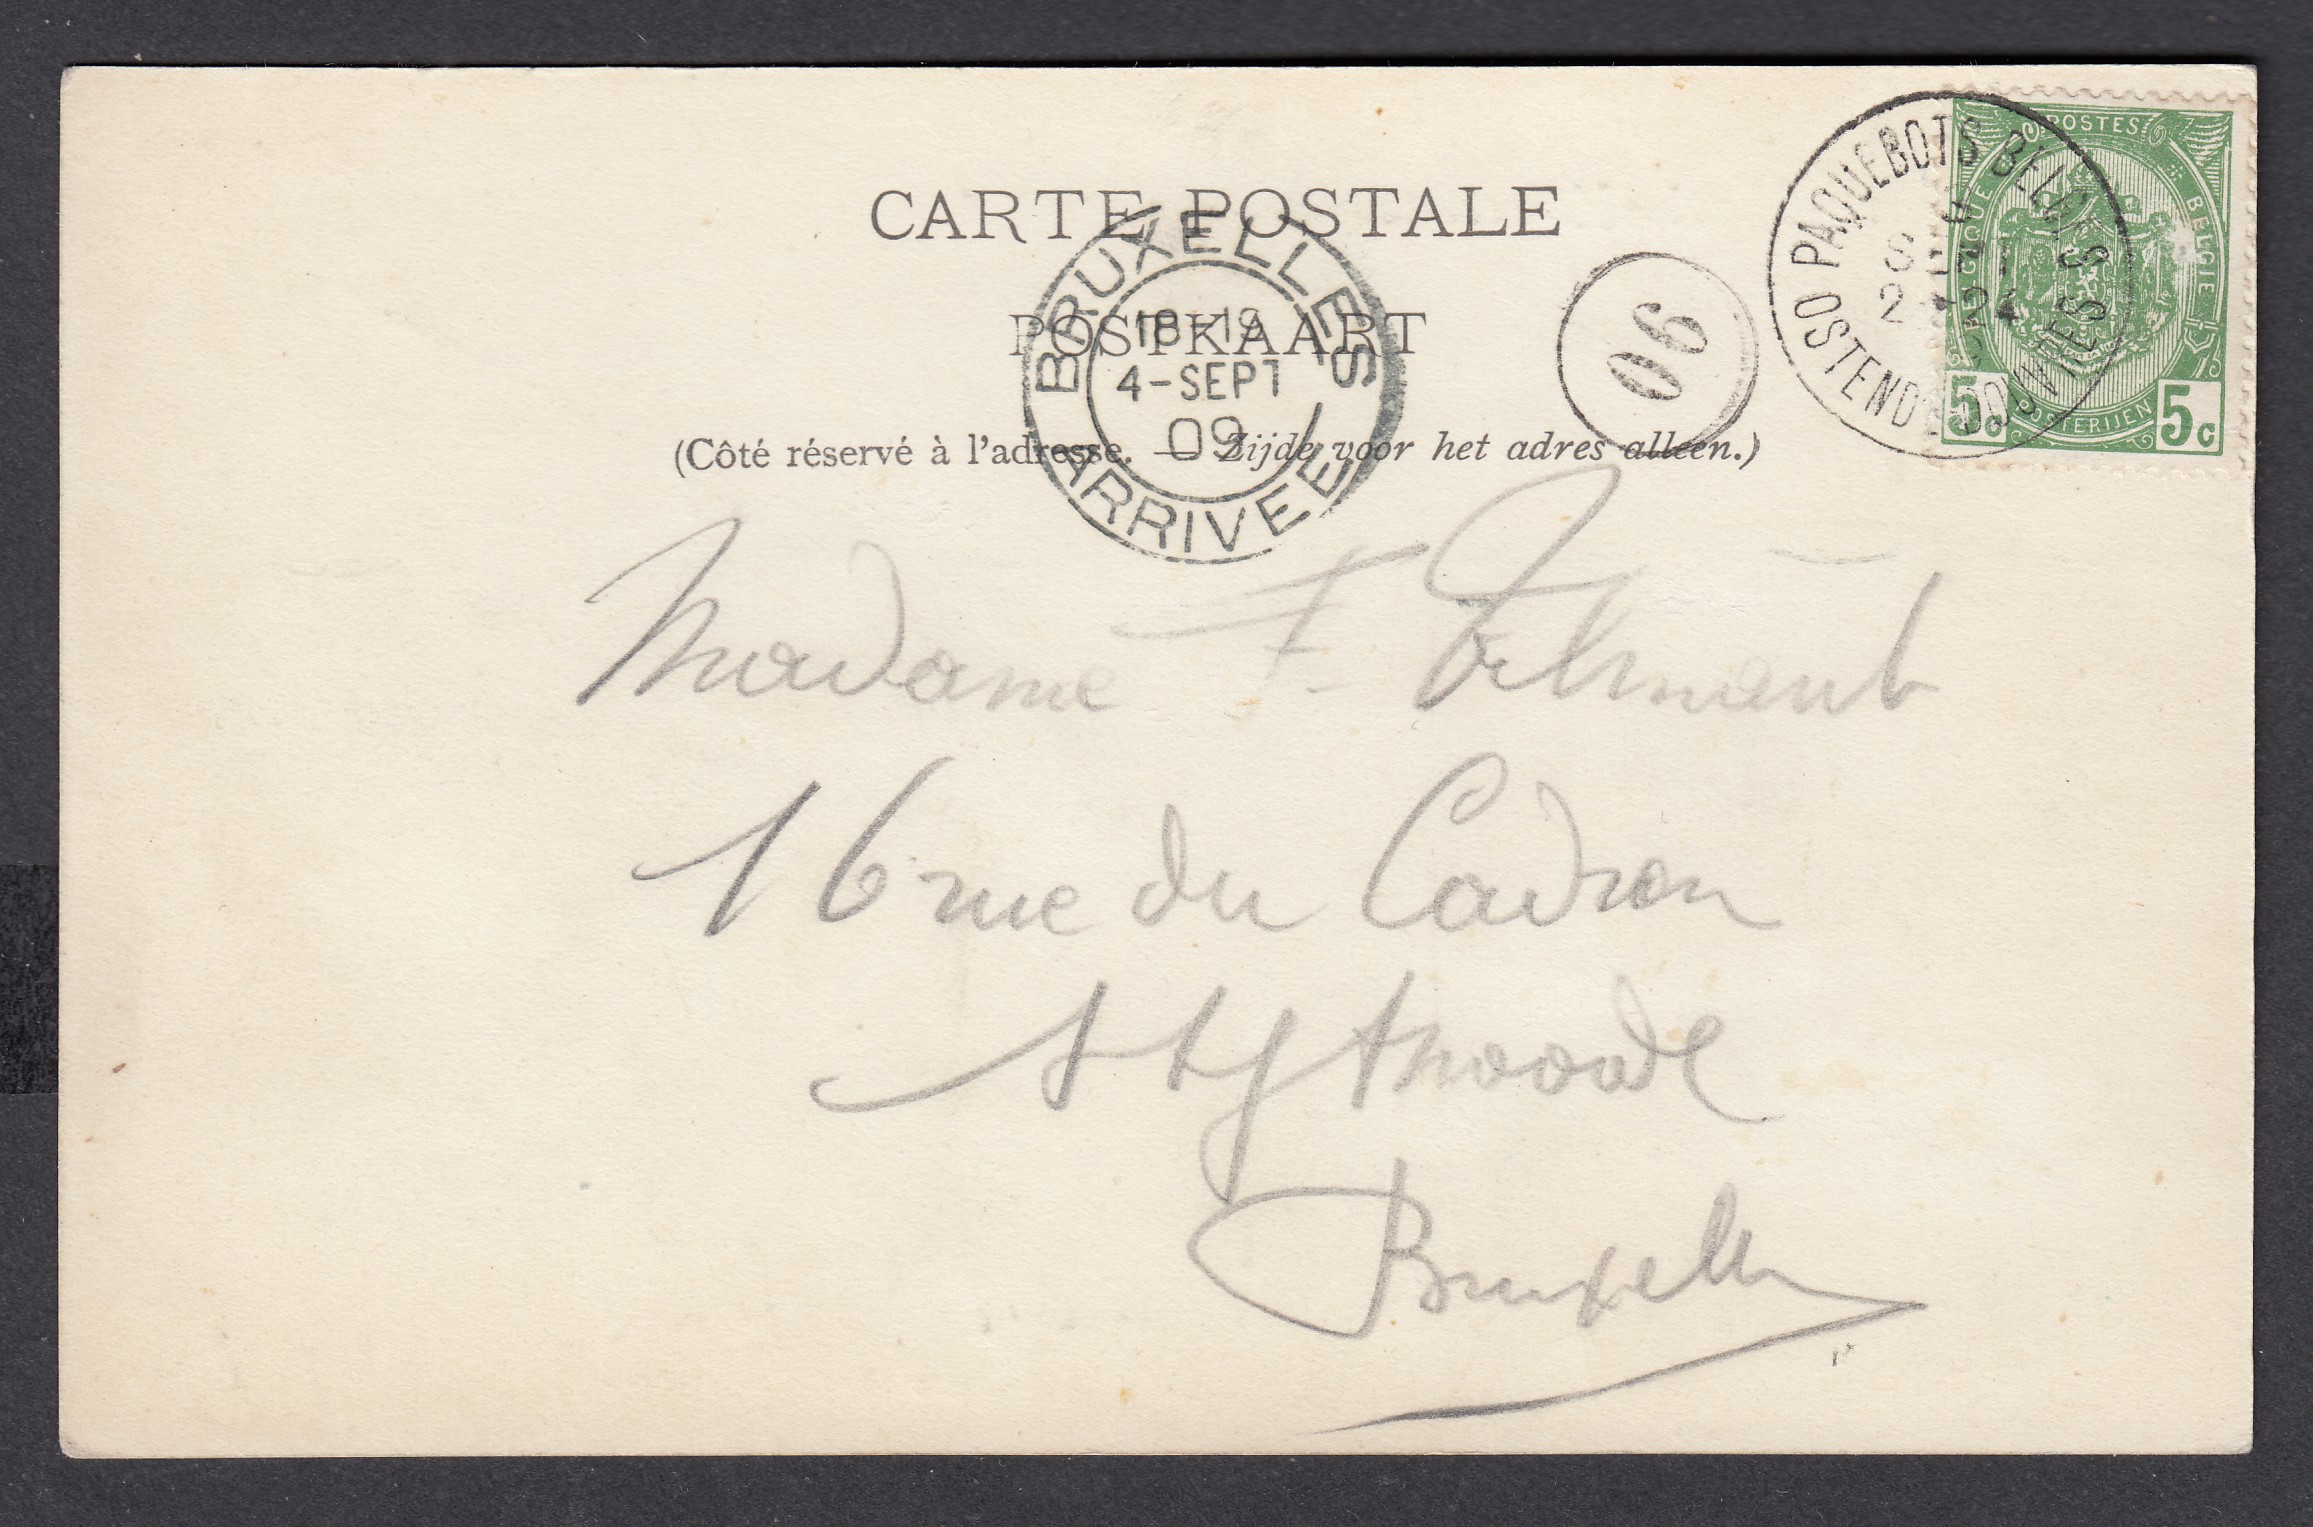 CARTE POSTALE
POSTKAART
(Côté réservé à l'adresse. — Zijde voor het adres alleen.)
BRUXELLES
18-19
4-SEPT
09
ARRIVEE
06
PAQUEBOTS BELGES
OSTENDE DOUVRES
POSTES
BELGIQUE
BELGIE
POSTERIJEN
5c
5c
Madame F.
16 rue du Cadran
St Josse tnoode
Bruxelles